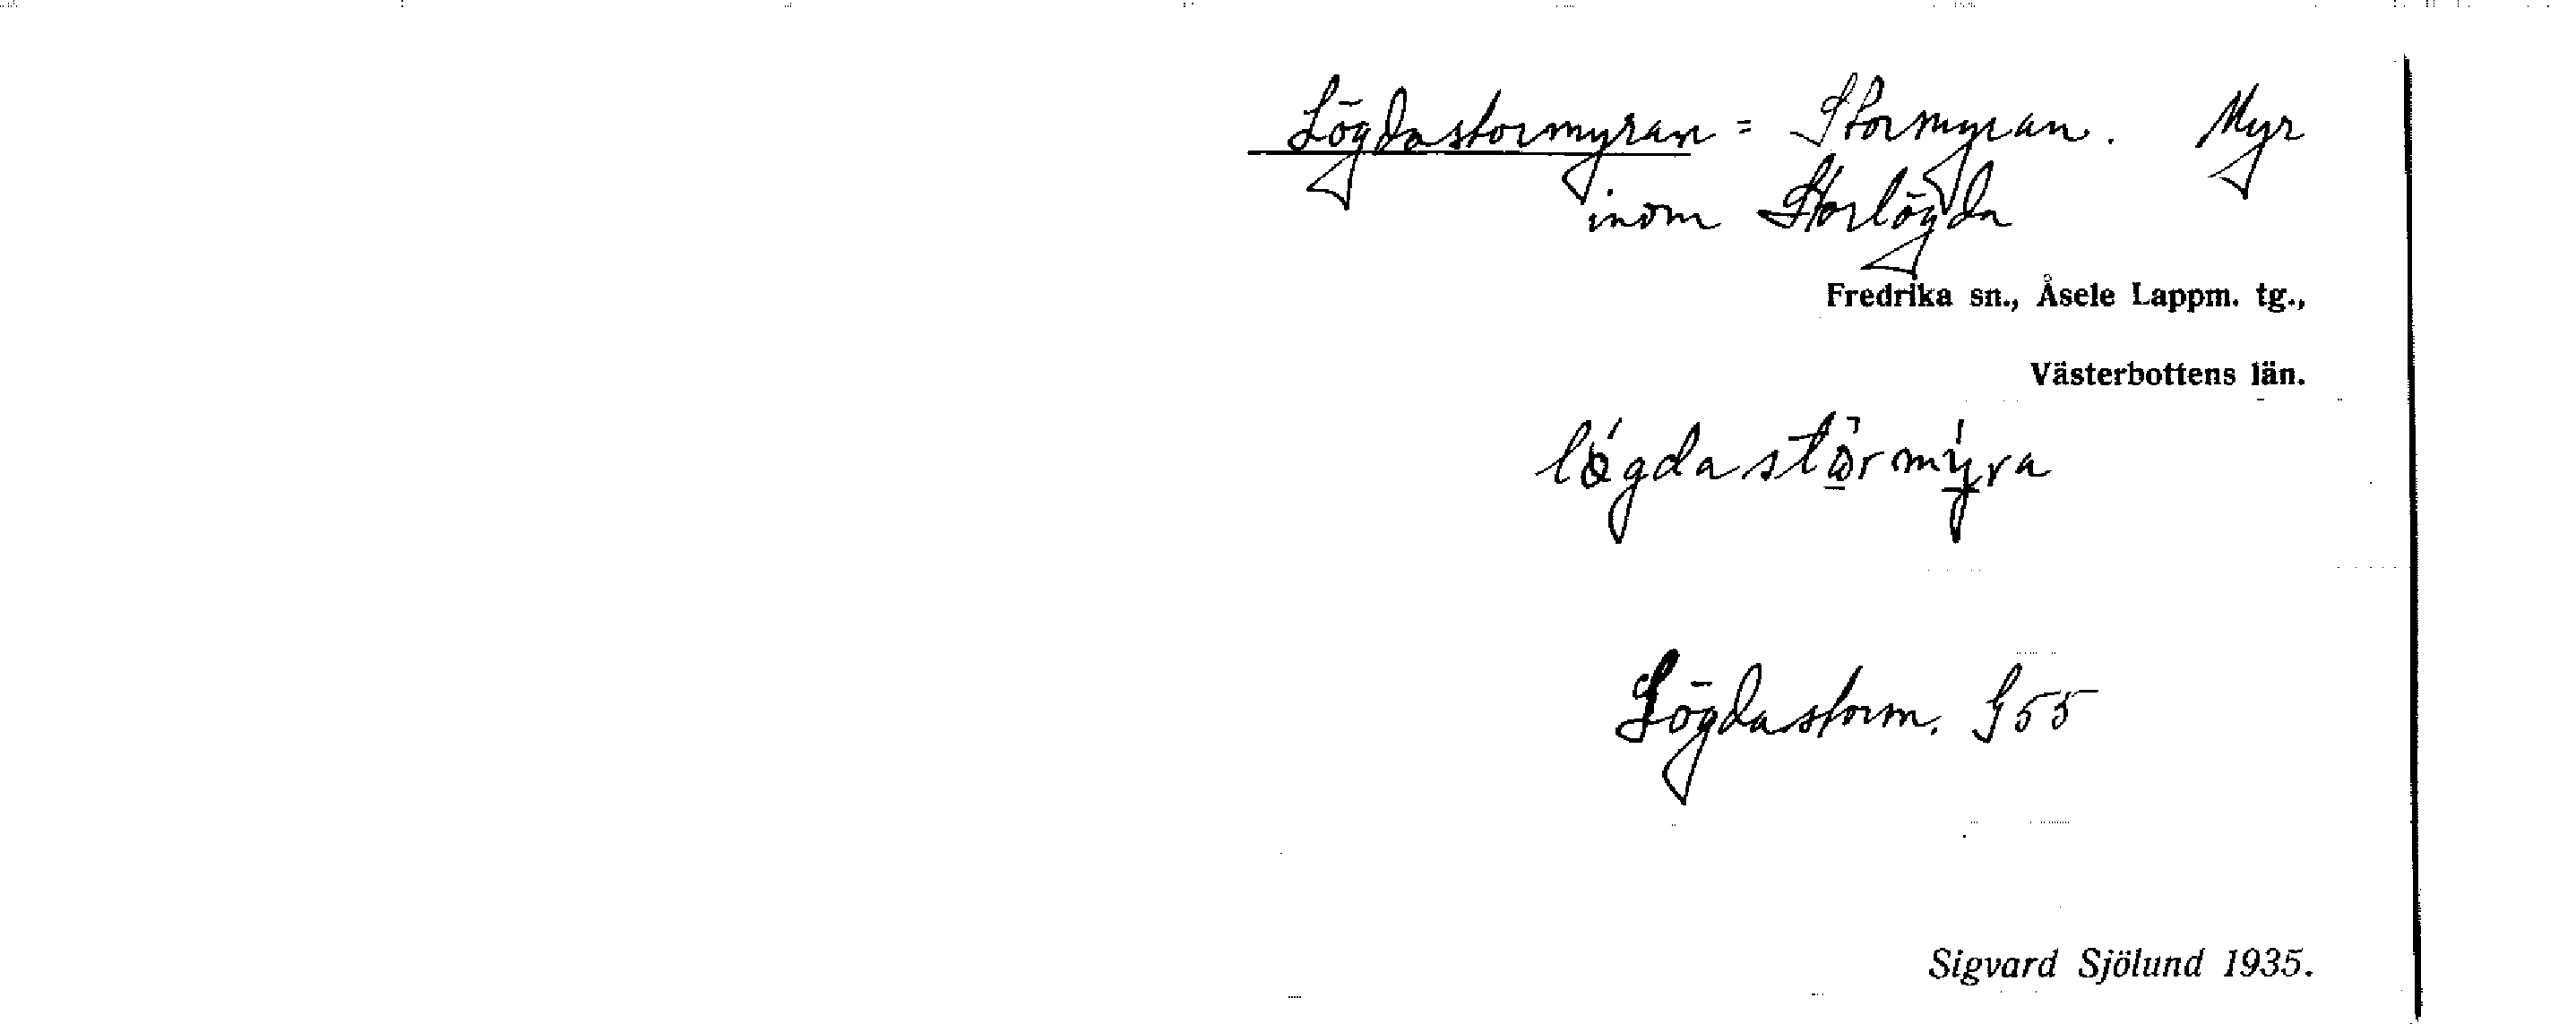 Lögdastormyran = Stormyran. Myr
inom Storlögda
Fredrika sn., Åsele Lappm. tg.,
Västerbottens län.
lǿgdastòrmýra
Lögdastorm. G55
Sigvard Sjölund 1935.